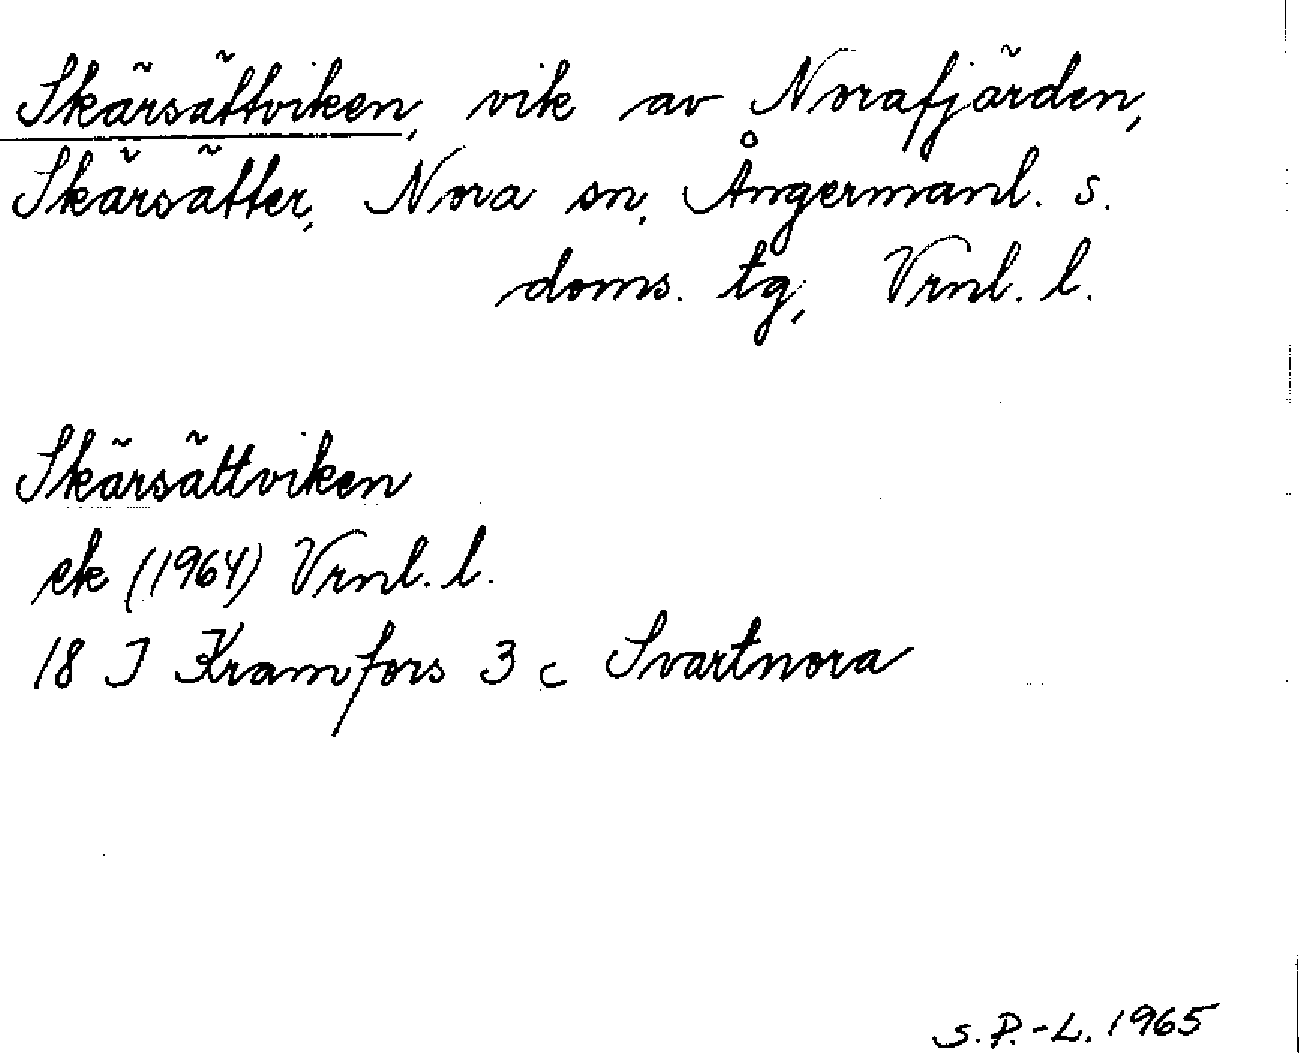 Skärsättviken, vik av Norafjärden,
Skärsätter, Nora sn, Ångermanl. s.
doms. tg, Vrnl. l.
Skärsättviken
ek (1964) Vrnl. l.
18 I Kramfors 3 c Svartnora
S. P.-L. 1965